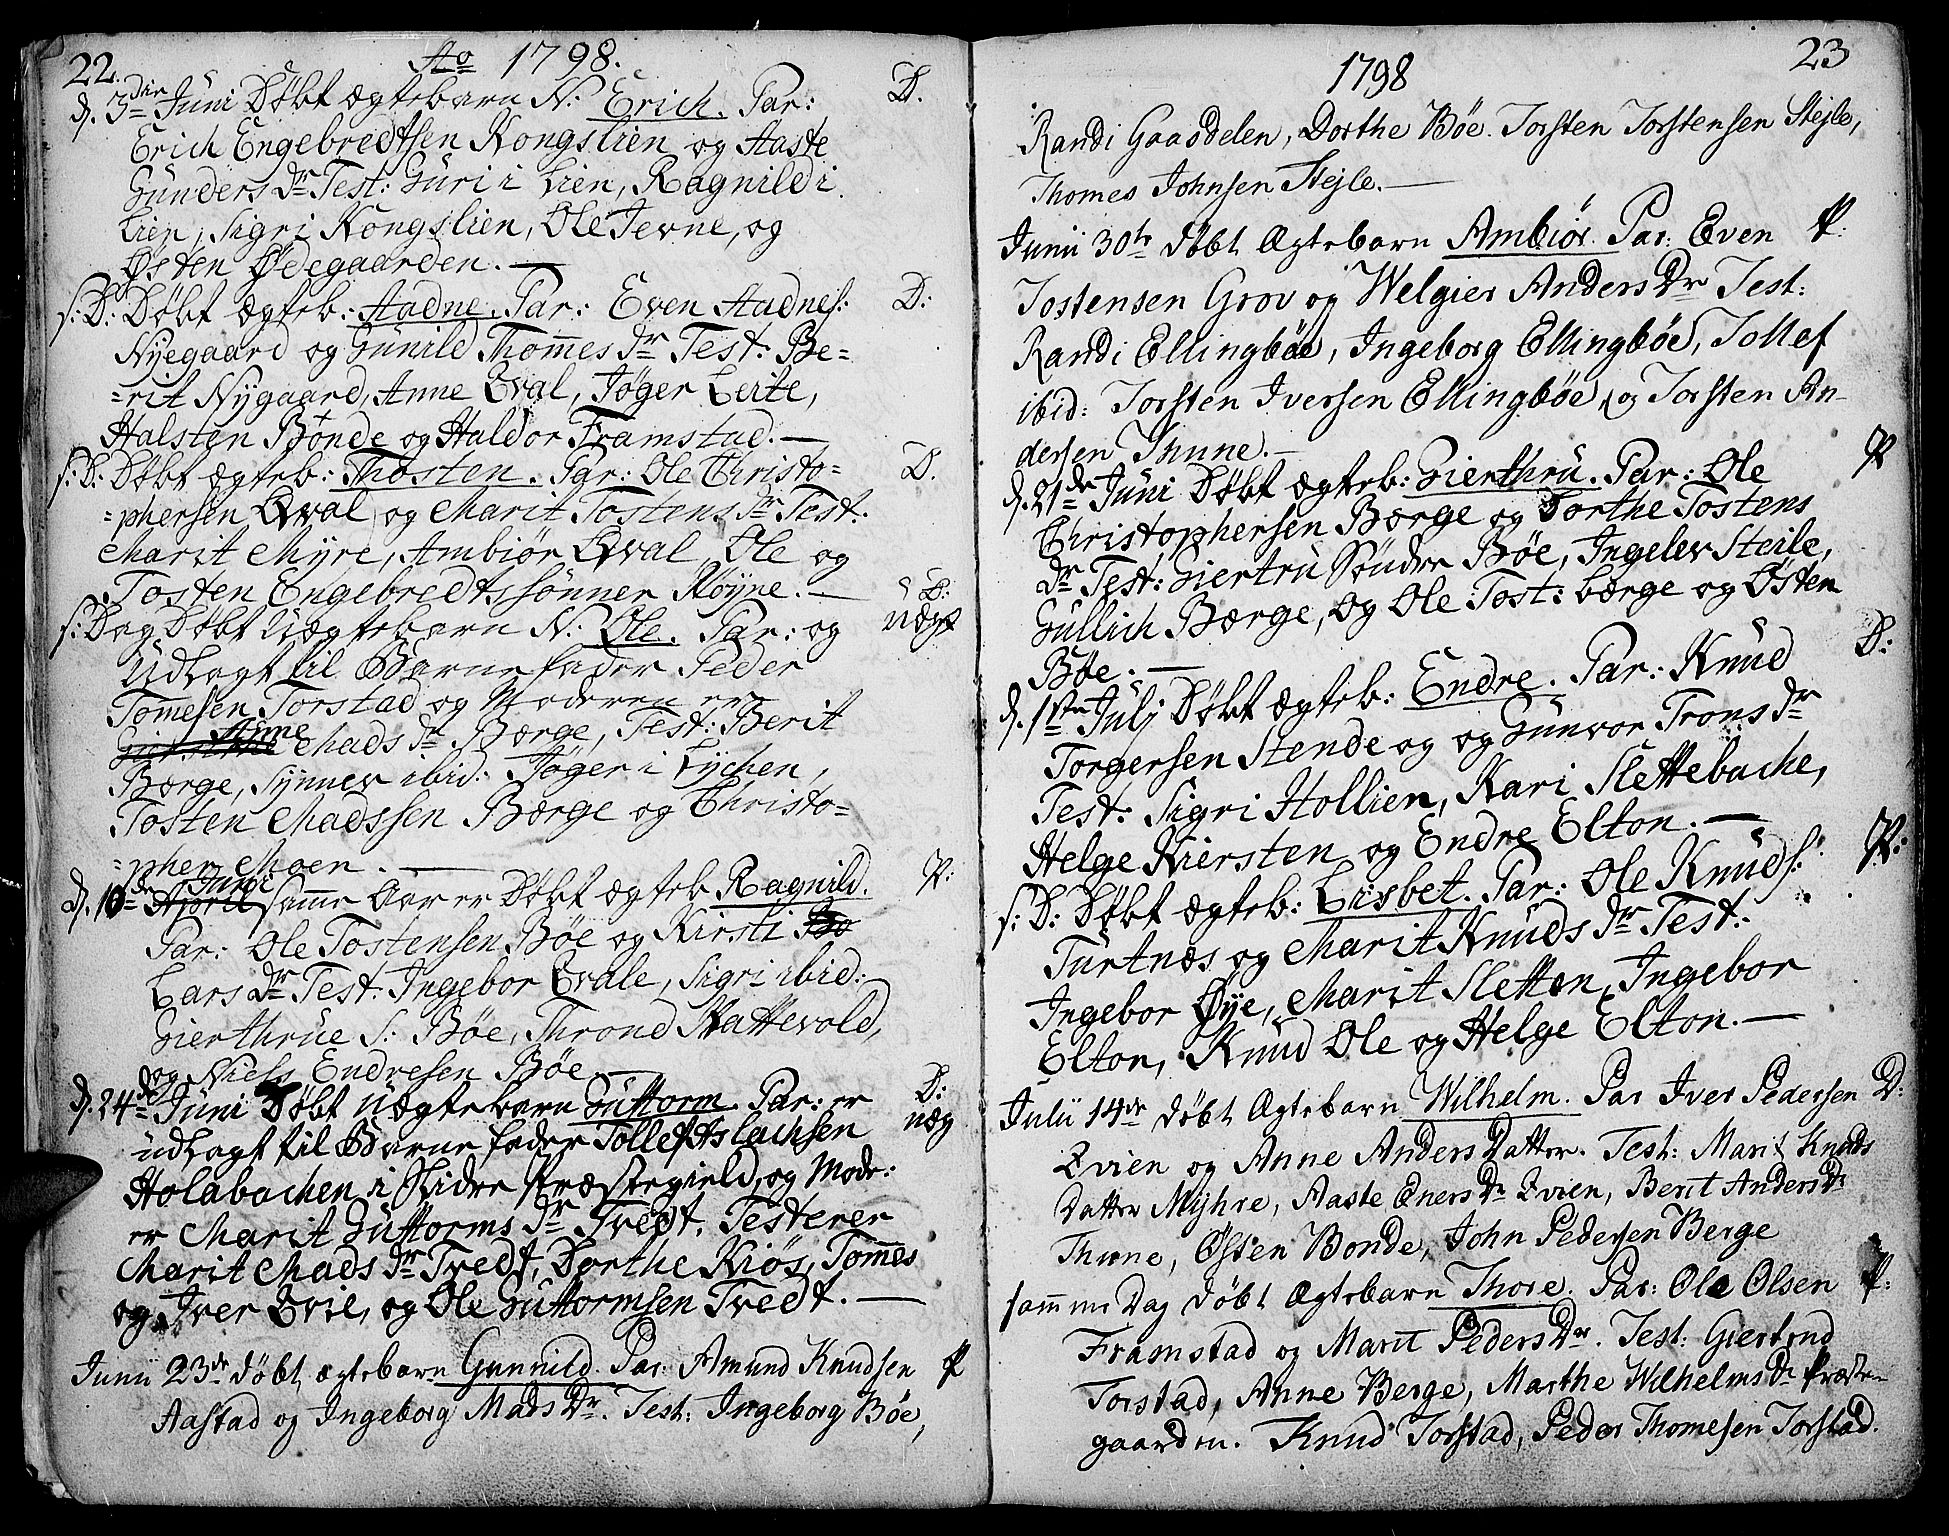 22. Ao 1798.
d. 3die Juni Døbt ægtebarn N: Erich. Par: D.
Erich Engebredtsen Kongslien og Aaste
Gunders Dr Test: Guri i Lien, Ragnild i
Lien, Sigri Kongslien, Ole Jevne, og
Østen Ødegaarden. —
s: D: Døbt ægteb: Aadne. Par: Even Aadnes: D:
Nyegaard og Gunild Thommes Dr Test: Be=
=rit Nygaard, Anne Qval, Jøger Leite,
Halsten Bonde og Haldor Framstad. —
s: D: Døbt ægteb: Thosten. Par: Ole Christo= D.
=phersen Qval og Marit Tostens Dr Test:
Marit Myre, Ambiør Qval, Ole og
Tosten Engebredtssønner Røyne. —
s: Dag Døbt Uægtebarn N: Ole. Par: og D: uægt
Udlagt til Barnefader Peder
Tomesen Torstad og Moderen er
Anne Mads Dr Børge, Test: Berit
Børge, Synnev ibid: Jøger i Lychen,
Tosten Madssen Børge og Christo=
=pher Moen. —
d. 10de Juni samme Aar er Døbt ægteb Ragnild. P:
Par: Ole Tostensen Bøe og Kirsti
Lars Dr Test: Ingebor Qvale, Sigri ibid:
Gierthrue S: Bøe, Thrond Skattevold,
og Niels Endresen Bøe. —
d. 24de Juni Døbt Uægtebarn Guttorm. Par: er D: uæg
udlagt til Barnefader Tollef Aslachsen
Holabachen i Slidre Præstegield, og Modr:
er Marit Guttorms Dr Tvedt. Testerer
Marit Mads Dr Tvedt, Dorthe Kiøs, Tommes
og Iver Qvie, og Ole Guttormsen Tvedt. —
Junii 23de døbt ægtebarn Gunnild. Par: Amund Knudsen P
Aastad og Ingeborg Mads Dr. Test: Ingeborg Bøe,
1798 23
Randi Gaasdelen, Dorthe Bøe. Torsten Torstensen Stejle,
Thomes Johnsen Stejle. —
Junii 30te døbt Ægtebarn Ambiør. Par: Even P:
Tostensen Grov og Welgier Anders Dr Test:
Randi Ellingbøe, Ingeborg Ellingbøe, Tollef
ibid: Torsten Iversen Ellingbøe, og Torsten An-
dersen Thune. —
d. 21de Juni Døbt ægteb: Gierthru. Par: Ole P
Christophersen Børge og Dorthe Tostens
Dr Test: Giertru Sønder Bøe, Ingelev Steile,
Gullich Børge, Og Ole Tost: børge og Østen
Bøe. —
d. 1ste Julj Døbt ægteb: Endre. Par: Knud D:
Torgersen Stende og og Gunvor Trons Dr
Test: Sigri Hollien, Kari Slettebache,
Helge Kiersten og Endre Elton. —
s: D: Døbt ægteb: Lisbet. Par: Ole Knuds: P:
Turtnæs og Marit Knuds Dr Test:
Ingebor Øye, Marit Sletten, Ingebor
Elton, Knud Ole og Helge Elton. —
Julii 14de døbt Ægtebarn Wilhelm. Par Iver Pedersen D:
Qvien og Anne Anders Datter. Test: Marit Knuds
Datter Myhre, Aaste Eners Dr Qvien, Berit Anders Dr
Thune, Østen Bonde, John Pedersen Berge
samme Dag døbt Ægtebarn Thore. Par: Ole Olsen P:
Framstad og Marit Peders Dr. Test: Giertrud
Torstad, Anne Berge, Marthe Wilhelms Dr Præste-
gaarden. Knud Torstad, Peder Thomesen Torstad.